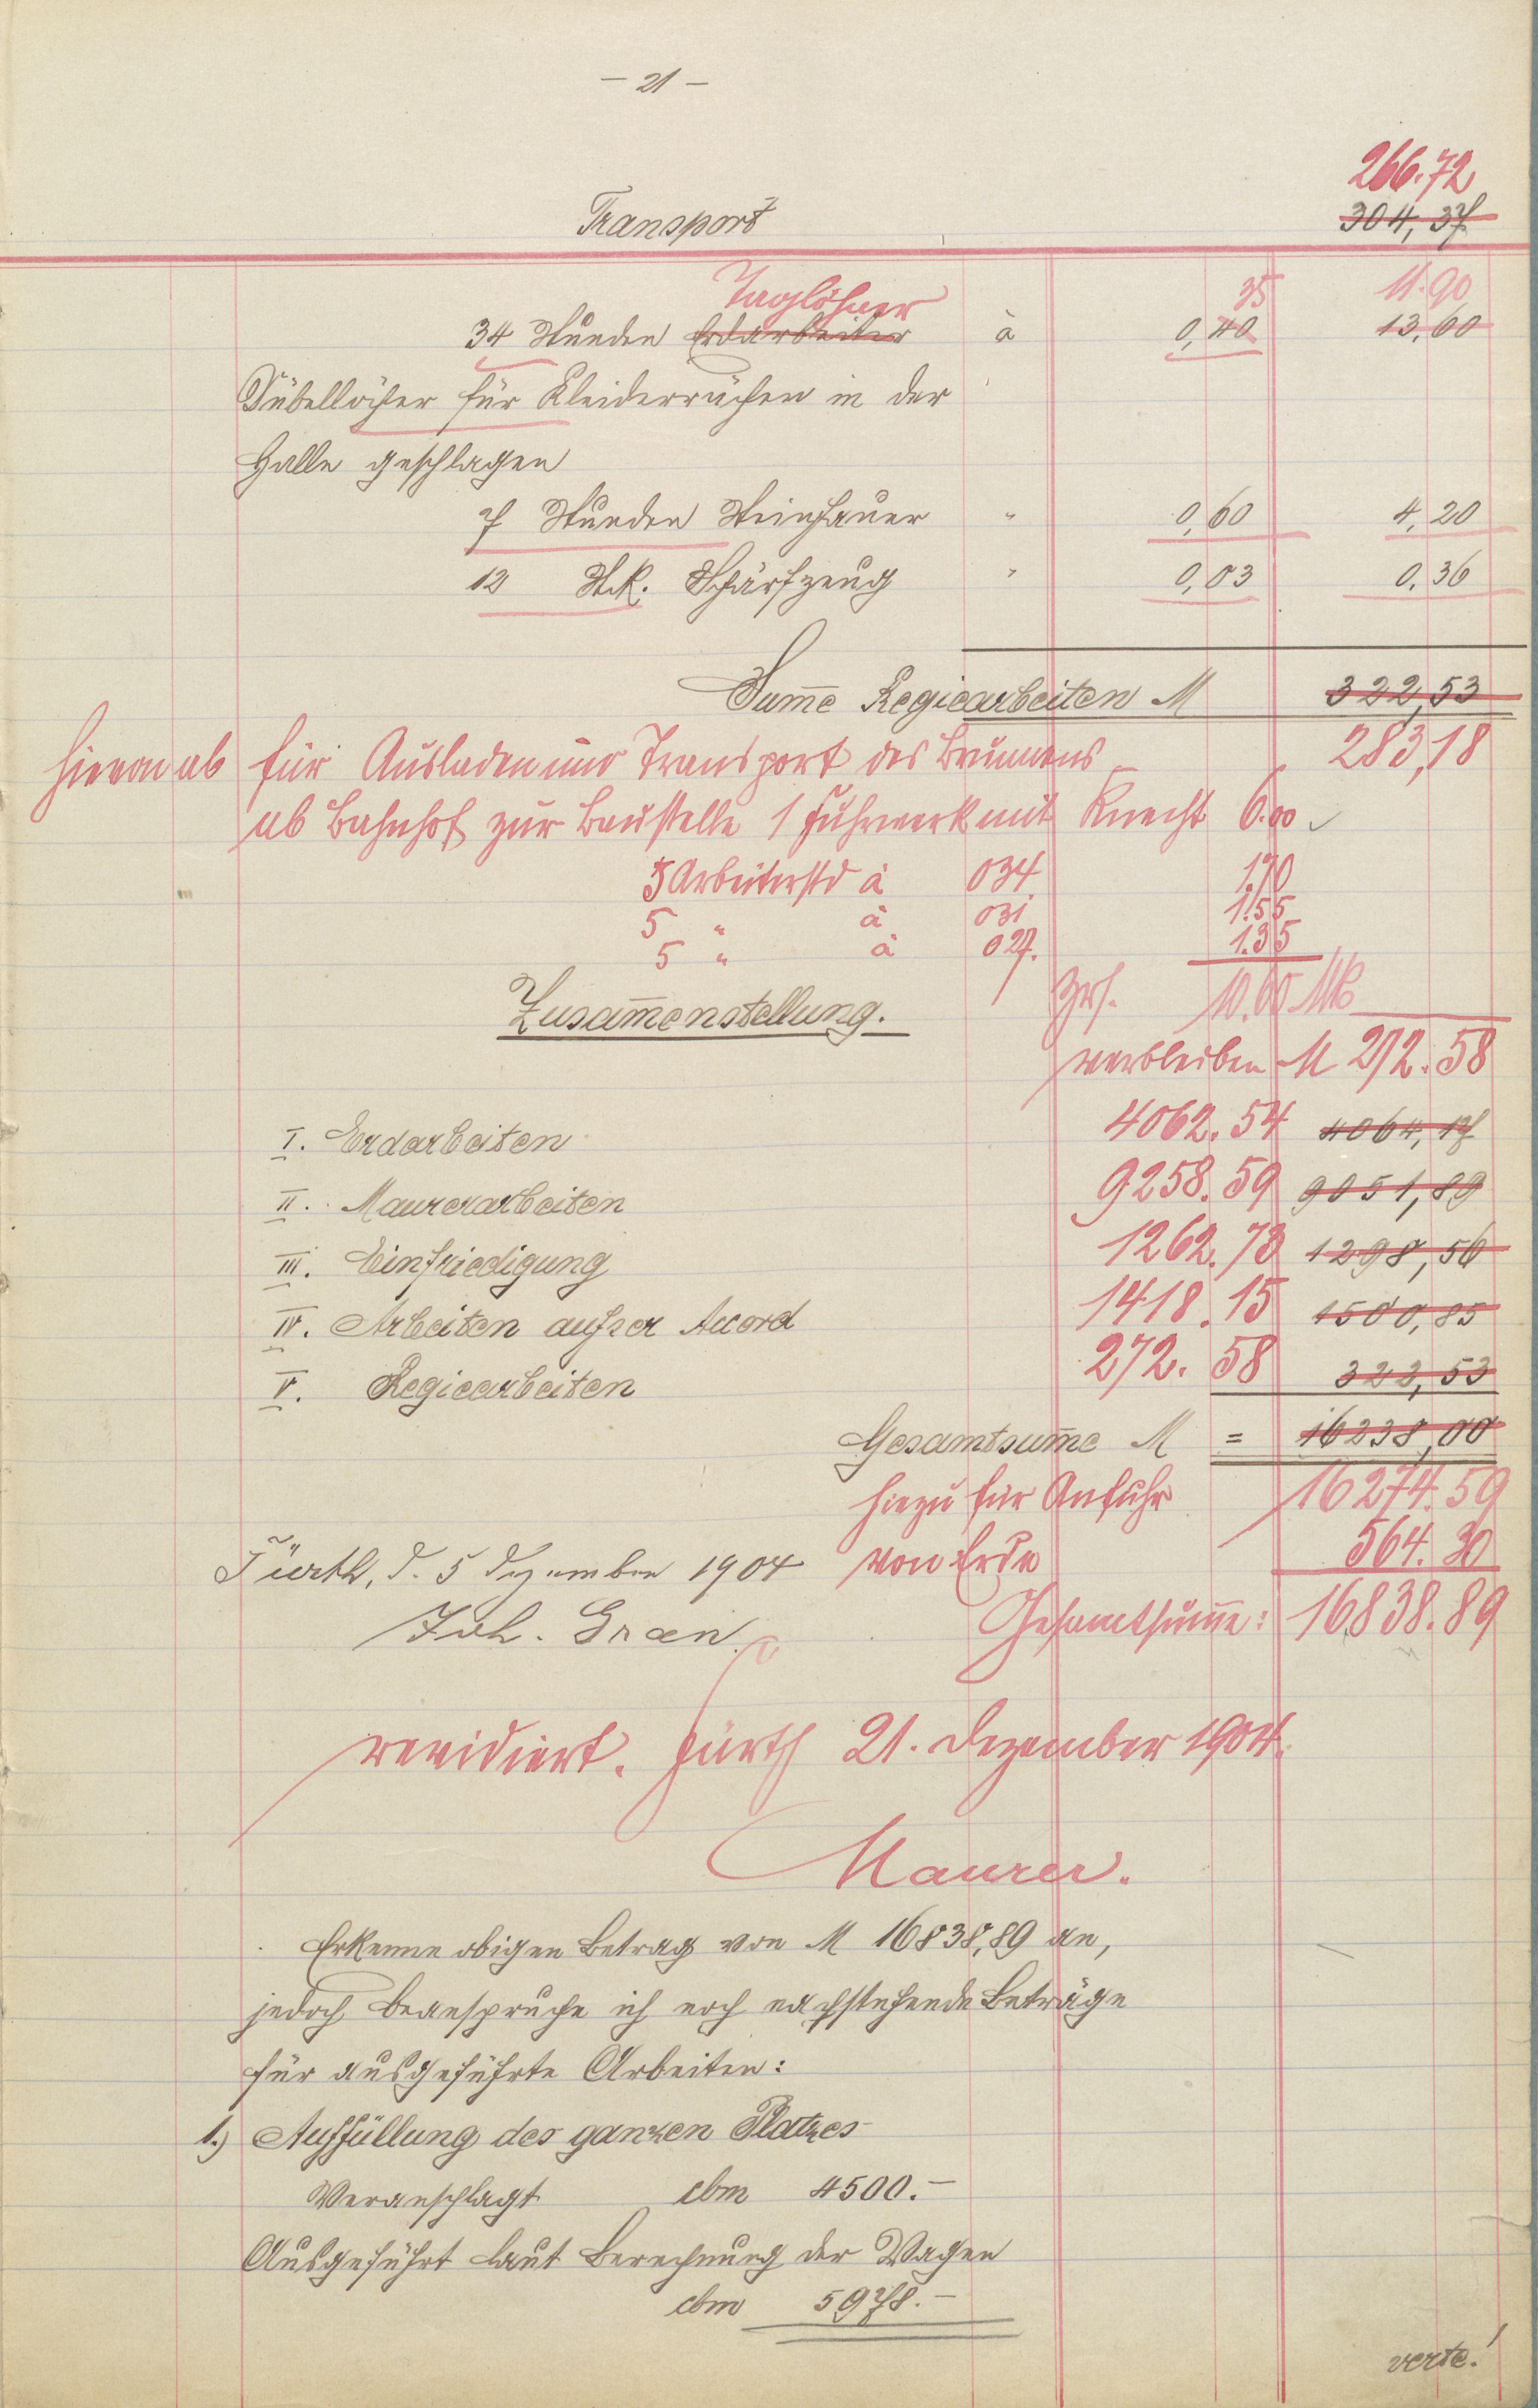 – 21 –
266.72
Transport 304,37
Taglöhner 35 11.90
34 Stunden Erdarbeiter à 0,40 13,60
Dübellöcher für Kleiderrächen in der
Halle geschlagen
7 Stunden Steinhauer " 0,60 4,20
12 Stk. Schärfzeug " 0,03 0,36
Sum̄e Regiearbeiten M 322,53
283,18
hievon ab für Ausladen und Transport des Brunnens
ab Bahnhof zur Baustelle 1 Fuhrwerk mit Knecht 6.00
5 Arbeiterstd à 034. 1.70
5 " à 031 1.55
5 " à 027. 1.35
Zus. 10.60 Mk
Zusam̄enstellung.
verbleiben M 272.58
I. Erdarbeiten 4062.54 4064,17
II. Maurerarbeiten 9258.59 9051,89
III. Einfriedigung 1262.73 1298,56
IV. Arbeiten außer Accord 1418.15 1500,85
V. Regiearbeiten 272.58 322,53
Gesamtsum̄e M = 16238,00
hiezu für Anfuhr 16274.59
von Erde 564.30
Fürth, d. 5 Dezember 1904
Gesamtsum̄e: 16838.89
Joh. Gran
revidiert. Fürth 21. Dezember 1904.
Maurer.
Erkenne obigen Betrag von M 16838,89 an,
jedoch beanspruche ich noch nachstehende Beträge
für ausgeführte Arbeiten:
1.) Auffüllung des ganzen Platzes
Veranschlagt cbm 4500.–
Ausgeführt laut Berechnung der Wagen
cbm 5978.–
verte!